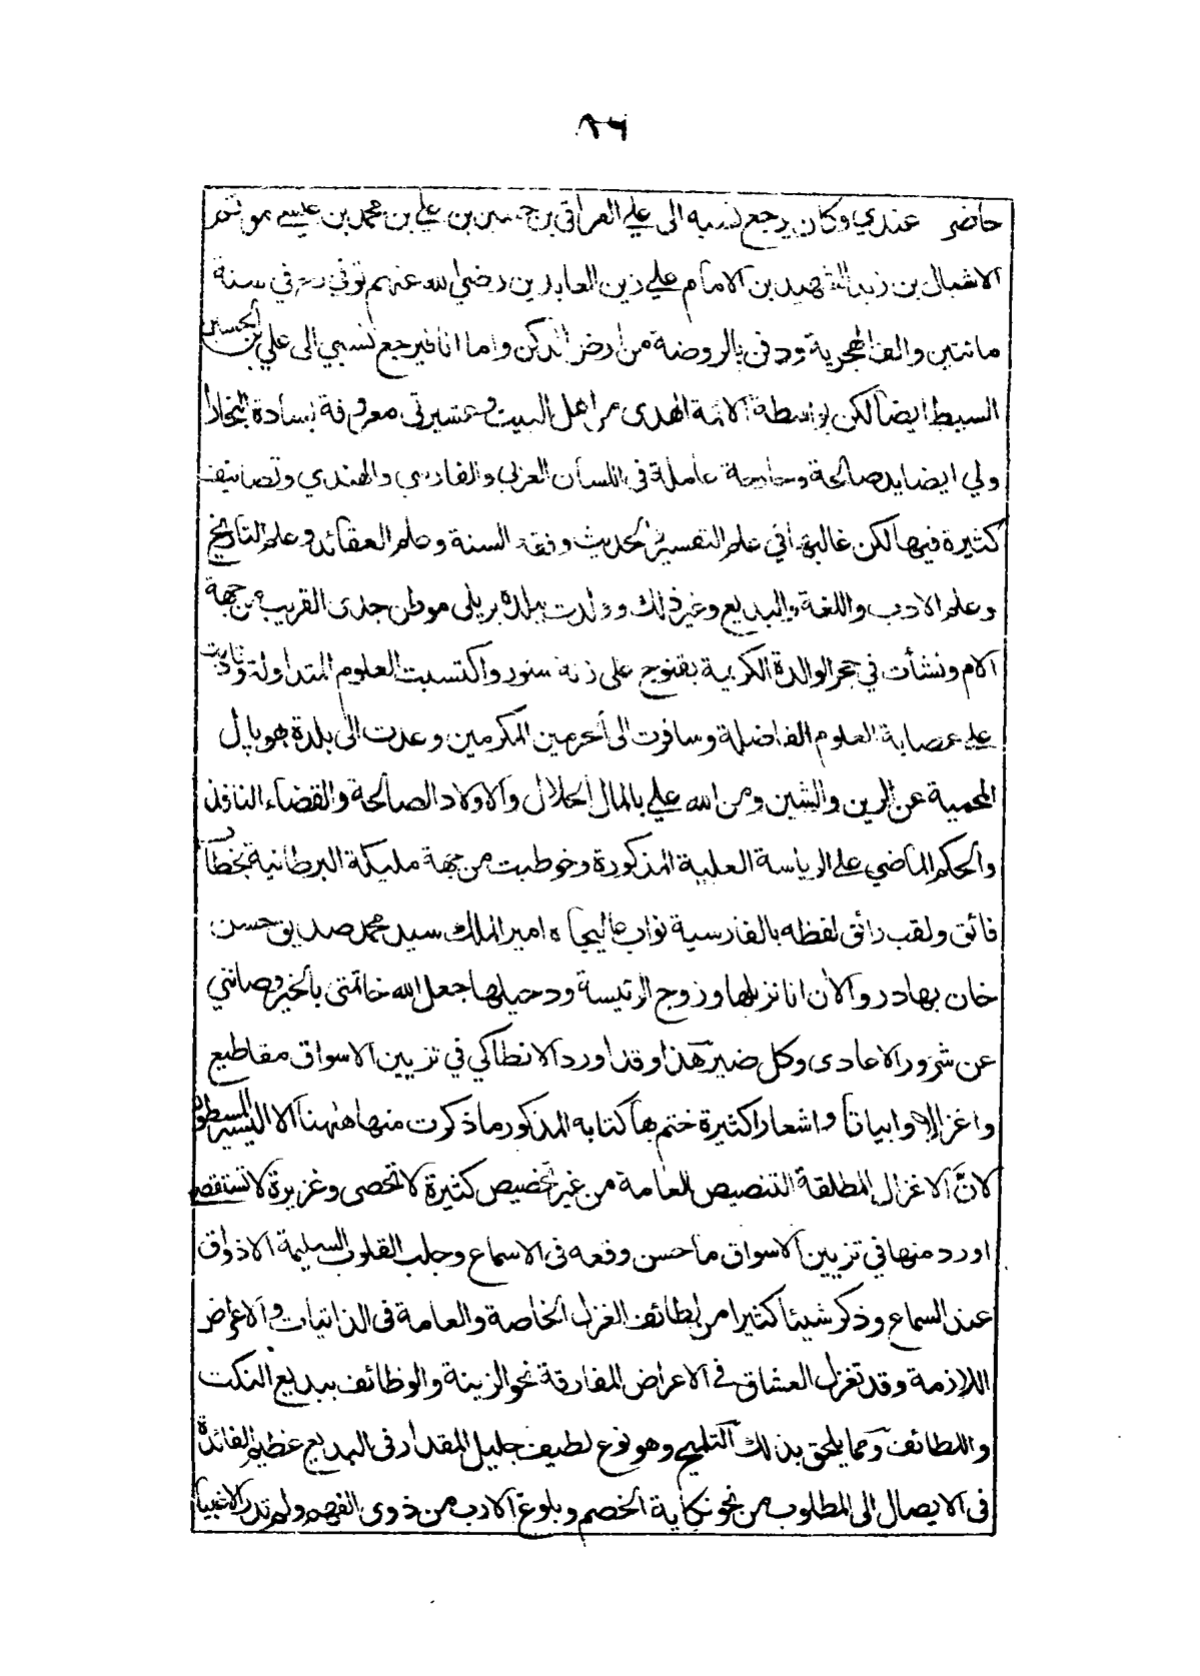 ٨٦
حاضر عندي وكان يرجع نسبه الى علي العراقي بن حسين بن علي بن محمد بن عيسى موتم
الاشبال بن زيد الشهيد بن الامام علي زين العابدين رضي الله عنهم توفي رح في سنة
مائتين والف الهجرية ودفن بالروضة من ارض الدكن واما انا فيرجع نسبي الى علي بن الحسين
السبط ايضا لكن بواسطة الائمة الهدى من اهل البيت وعشيرتي معروفة بسادة البخارا
ولي ايضا يد صالحة وجامحة عاملة في اللسان العربي والفارسي والهندي وتصانيف
كثيرة فيها لكن غالبها في علم التفسير والحديث وفقه السنة وعلم العقائد وعلم التاريخ
وعلم الادب واللغة والبديع وغير ذلك وولدت ببلدة بريلى موطن جدى القريب من جهة
الام ونشأت في حجر الوالدة الكريمة بقنوج على زنة سنور واكتسبت العلوم المتداولة وتادبت
على عصابة العلوم الفاضلة وسافرت الى الحرمين المكرمين وعدت الى بلدة بهوپال
المحمية عن الرين والشين ومن الله علي بالمال الحلال والاولاد الصالحة والقضاء النافذ
والحكم الماضي على الرياسة العلية المذكورة وخوطبت من جهة مليكة البرطانية بخطاب
فائق ولقب رائق لفظه بالفارسية نواب عاليجاه امير الملك سيد محمد صديق حسن
خان بهادر والان انا نزيلها وزوج الرئيسة ودخيلها جعل الله خاتمتى بالخير وصانني
عن شرور الاعادى وكل ضير هذا وقد اورد الانطاكي في تزيين الاسواق مقاطيع
واغزالا وابياتا واشعارا كثيرة ختم بها كتابه المذكور ما ذكرت منها ههنا الا اليسير المسطور
لان الاغزال المطلقة التنصيص العامة من غير تخصيص كثيرة لا تحصى وغزيرة لا تستقصى
اورد منها في تزيين الاسواق ما حسن وقعه فى الاسماع وجلب القلوب السليمة الاذواق
عند السماع وذكر شيئا كثيرا من لطائف الغزل الخاصة والعامة فى الذاتيات والاعراض
اللازمة وقد تغزل العشاق في الاعراض المفارقة نحو الزينة والوظائف ببديع النكت
واللطائف ومما يلحق بذلك التلميح وهو نوع لطيف جليل المقدار فى البديع عظيم الفائدة
فى الايصال الى المطلوب من نحو نكاية الخصم وبلوغ الارب من ذوى الفهم ولم تدر الاغبياء